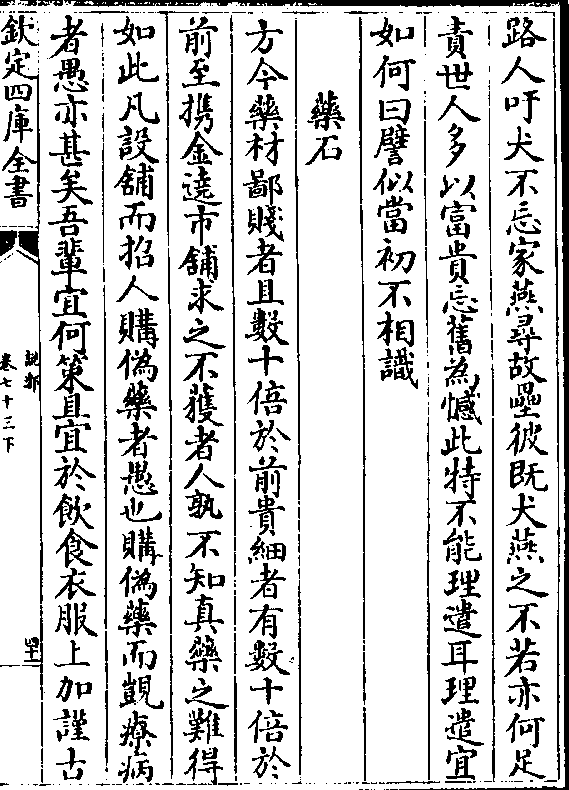 路人吁犬不忘家燕尋故壘彼既犬燕之不若亦何足
責世人多以富貴忘舊為憾此特不能理遣耳理遣宜
如何曰譬似當初不相識
藥石
方今藥材鄙賤者且數十倍於前貴細者有數十倍於
前至携金遶市舖求之不獲者人孰不知真藥之難得
如此凡設舖而招人購偽藥者愚也購偽藥而覬療病
者愚亦甚矣吾輩宜何策且宜於飲食衣服上加謹古
欽定四庫全書
說郛
卷七十三下